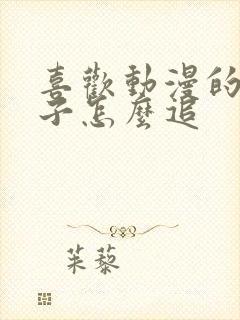 喜歡動漫的
子怎麼追
茱藜